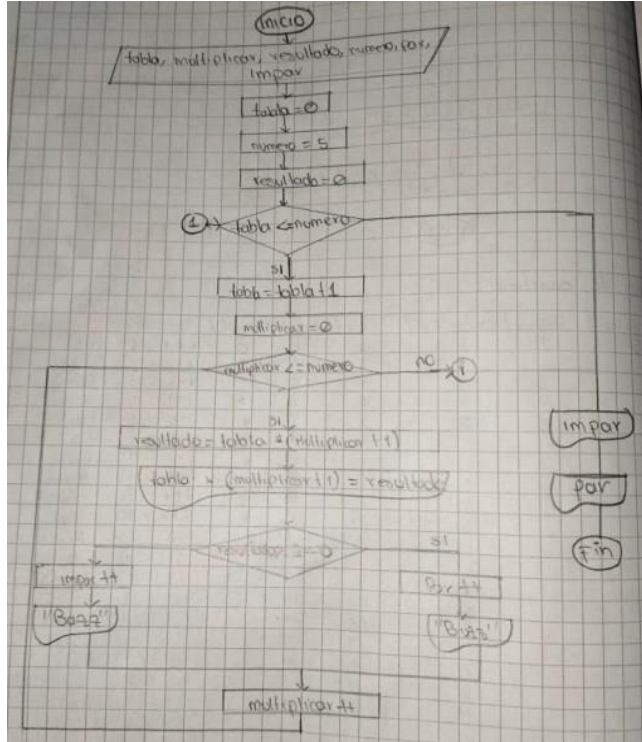 Inicio
tabla, multiplicar, resultado, numero, par,
impar
tabla = 0
numero = 5
resultado = 0
1
tabla <= numero
SI
tabla = tabla + 1
multiplicar = 0
multiplicar <= numero
no
1
SI
resultado = tabla * (multiplicar + 1)
tabla * (multiplicar + 1) = resultado
SI
impar ++
"Bazz"
multiplicar ++
impar
par
Fin